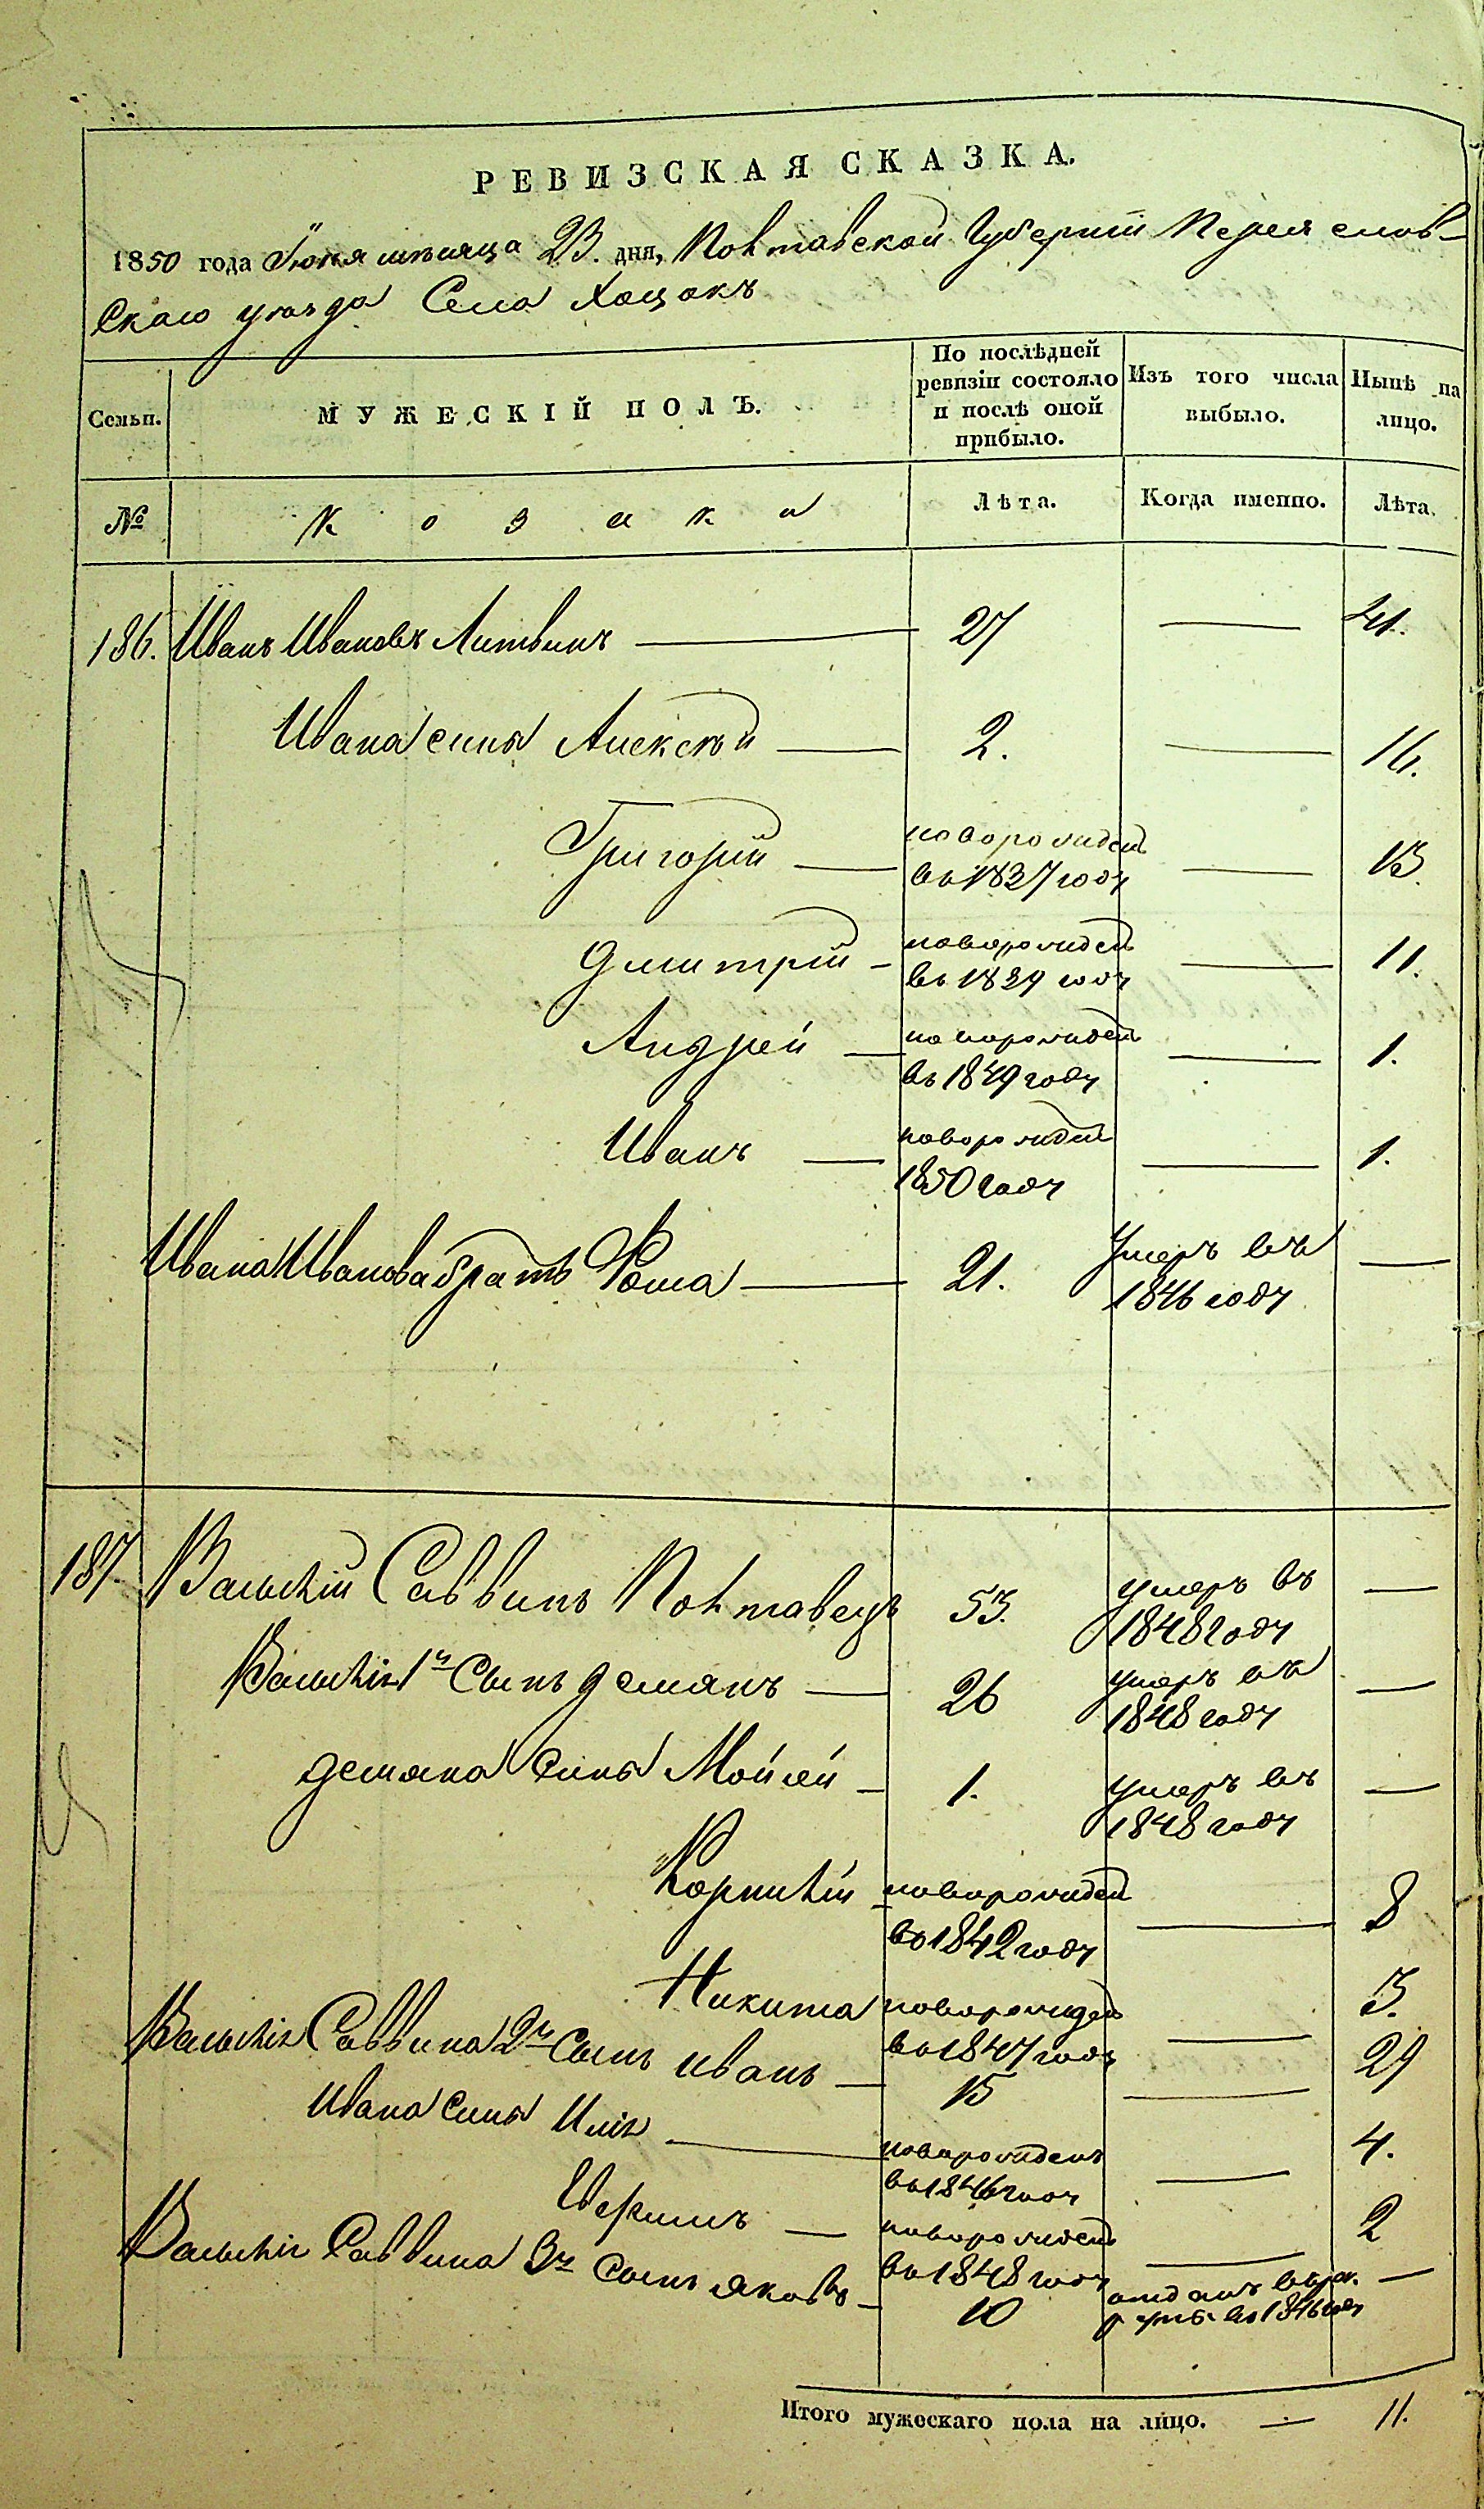 РЕВИЗСКАЯ СКАЗКА.
1850 года Іюня мѣсяца 23. дня, Полтавской Губерніи Переяслов-
скаго уѣзда Села Хоцокъ
Семьи. МУЖЕСКІЙ ПОЛЪ. По послѣдней ревизіи состояло и послѣ оной прибыло. Изъ того числа выбыло. Нынѣ на лицо.
№ Козаки Лѣта. Когда именно. Лѣта.
186. Иванъ Ивановъ Литвинъ — 27 — 41.
Ивана сыны Алексѣй — 2. — 16.
Григорій — новорожден
въ 1837 году — 13.
Дмитрій — новорожден
въ 1839 году — 11.
Андрей — новорожден
въ 1849 году — 1.
Иванъ — новорожден
1850 году — 1.
Ивана Иванова братъ Фома — 21. умеръ въ —
1846 году
187. Василій Саввинъ Полтавецъ 53. умеръ въ —
1848 году
Василія 1й Сынъ Демянъ — 26 умеръ въ —
1848 году
Демяна Сыны Мойсей — 1. умеръ въ —
1848 году
Корнилій — новорожден
въ 1842 году — 8
Никита новорожден
въ 1847 году — 3.
Василія Саввина 2й Сынъ Иванъ — 15 — 29
Ивана Сыны Илія — новорожденъ
въ 1846 году — 4.
Ефимъ — новорожден
въ 1848 году — 2
Василія Саввина 3й Сынъ Яковъ — 10 отданъ въ рек. —
руты въ 1846 году
Итого мужескаго пола на лицо. — 11.